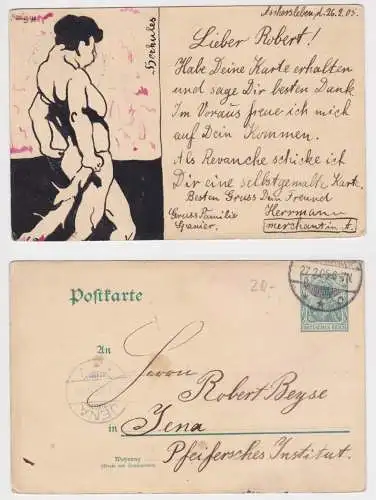 Aschersleben, d. 26.2.05.
Herkules
Lieber Robert!
Habe Deine Karte erhalten
und sage Dir besten Dank.
Im Voraus freue ich mich
auf Dein Kommen.
Als Revanche schicke ich
Dir eine selbstgemalte Karte.
Besten Gruss Dein Freund
Gruss Familie Herrmann
Spanier. merchant in A.
27.2.05
20,-
Postkarte
DEUTSCHES REICH
An
Herrn
Robert Beyse
JENA
in Jena
Wohnung Pfeifersches Institut.
(Straße und Hausnummer)